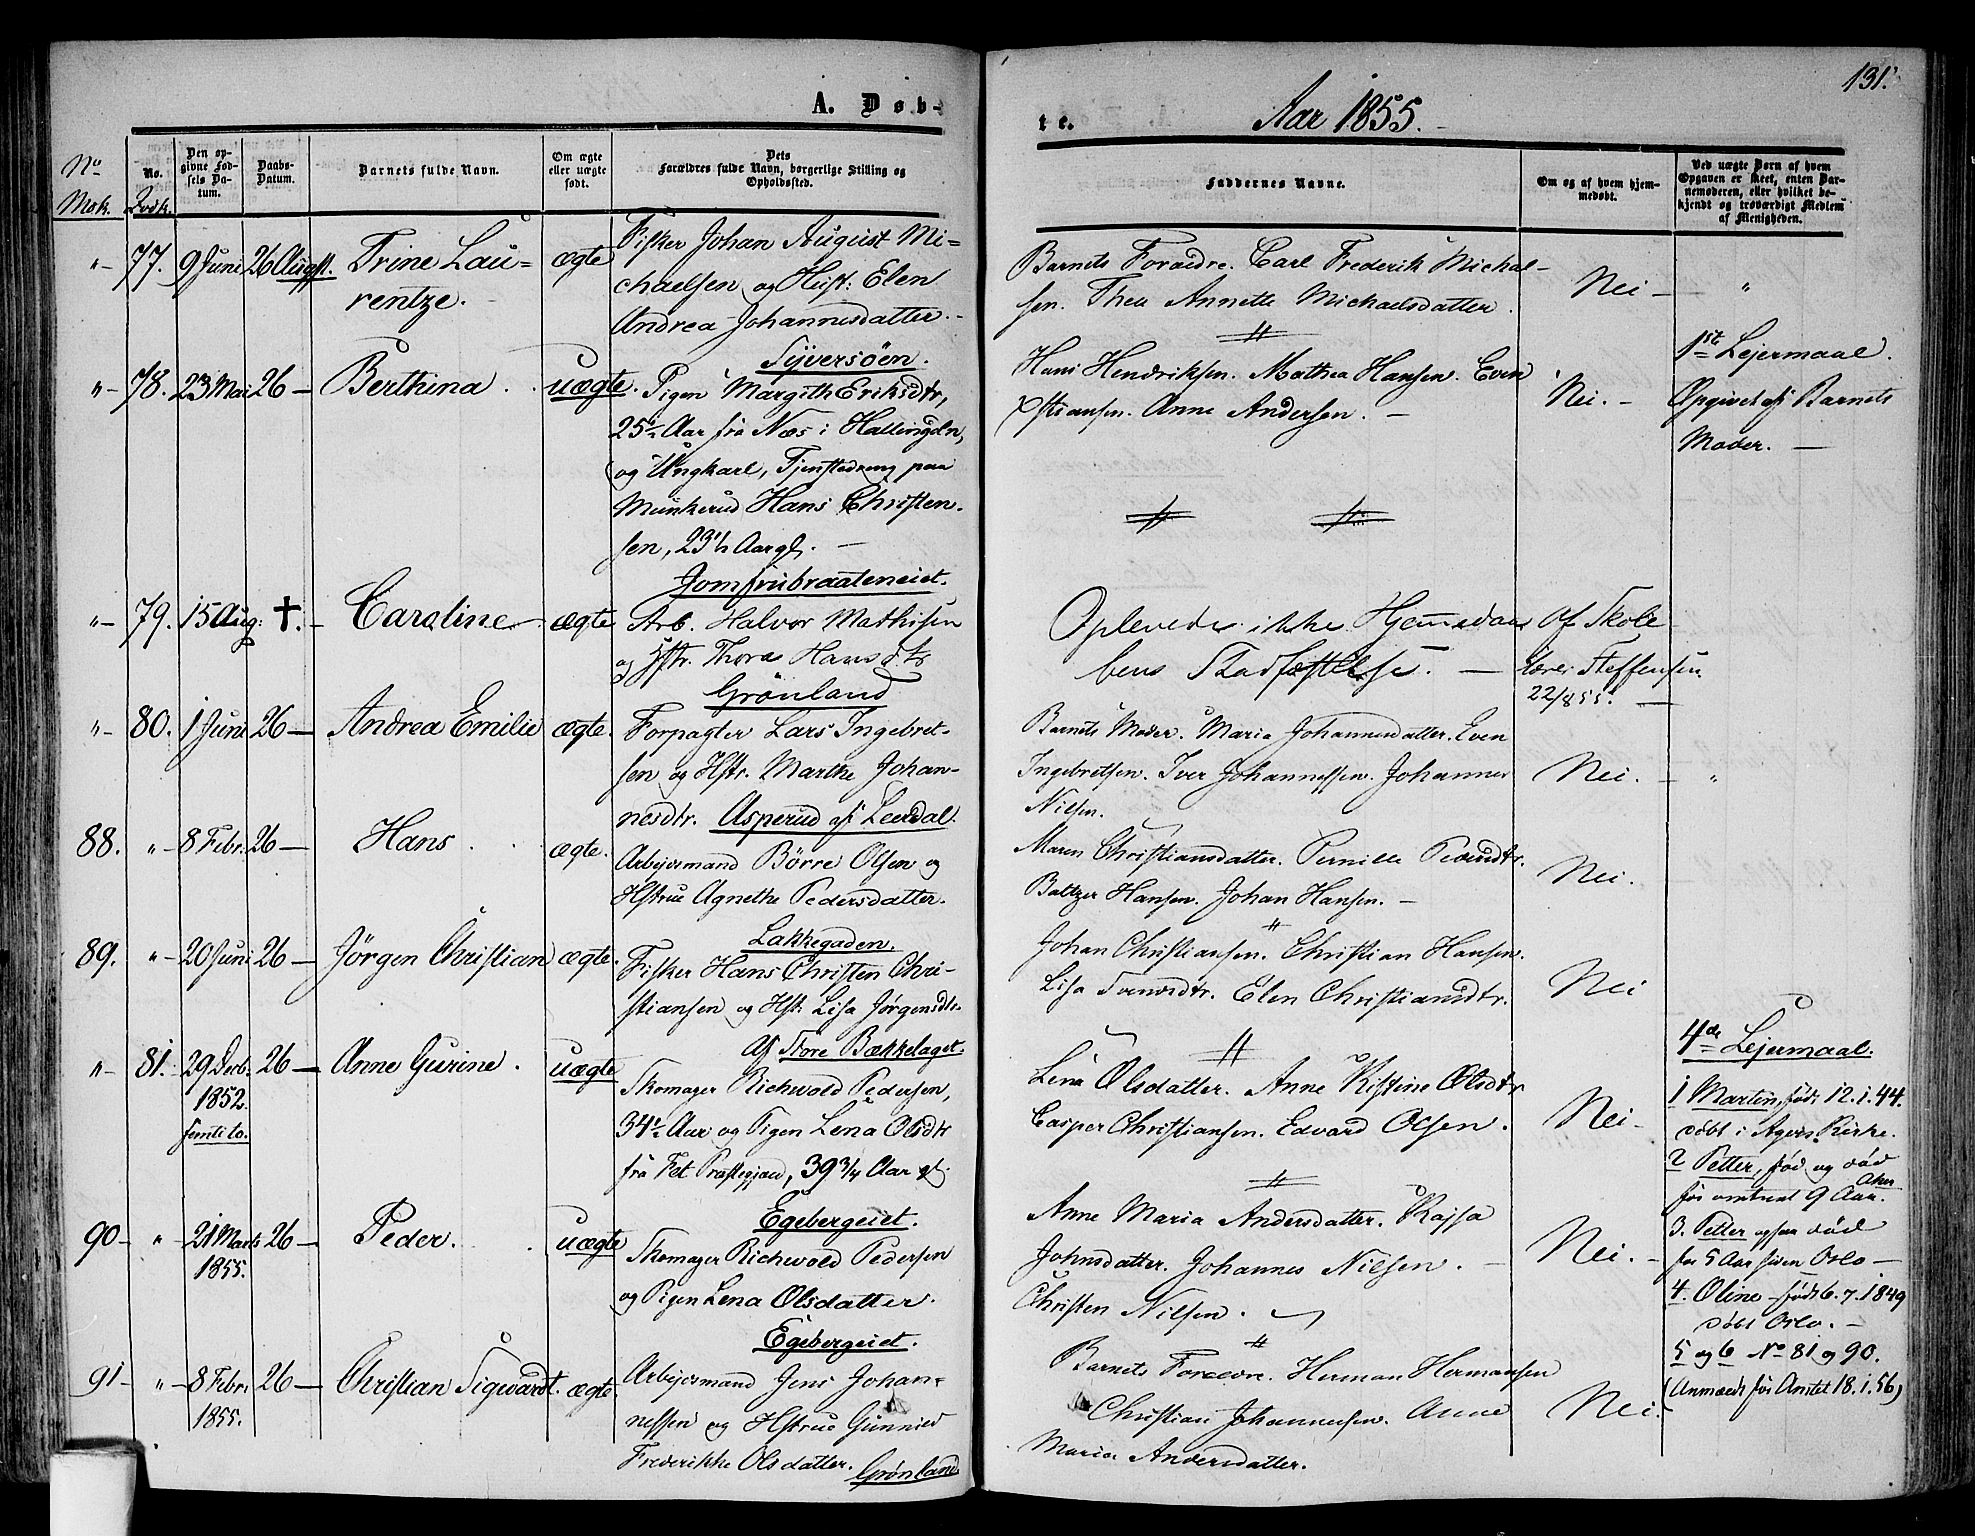 131.
A. Døb-
te.
Aar 1855.
No
Msk.
No.
Qvdk.
Den op-
givne Fød-
sels Da-
tum.
Daabs-
Datum.
Barnets fulde Navn.
Om ægte
eller uægte
født.
Dets
Forældres fulde Navn, borgerlige Stilling og
Opholdssted.
Faddernes Navne.
Om og af hvem hjem-
medøbt.
Ved uægte Børn af hvem
Opgaven er skeet, enten Bar-
nemoderen, eller hvilket be-
kjendt og troværdigt Medlem
af Menigheden.
"- 77. 9 Juni 26 Augst. Trine Lau=
rentze.
ægte
Fisker Johan August Mi=
chaelsen og Hust: Elen
Andrea Johannesdatter.
Syversøen.
Barnets Forældre. Carl Frederik Michal-
sen. Thea Annette Michaelsdatter.
Nei - "
"- 78. 23 Mai 26 - Berthina. uægte.
Pigen Margith Eriksdtr,
25½ Aar fra Næs i Hallingdn,
og Ungkarl, Tjenstedreng paa
Munkerud Hans Christen-
sen, 23½ Aar gl. -
Jomfrubraateneiet.
Hans Hendriksen. Mathea Hansen. Even
Xstiansen. Anne Andersen. -
Nei. -
1ste Lejermaal.
Opgivet af Barnets
Moder. -
"- 79. 15 Aug: †. - Caroline. ægte
Arb. Halvor Mathisen
og Hstr. Thora Hansdtr
Grönland
Oplevede ikke Hjemmedaa-
bens Stadfæstelse. -
Af Skole-
lærer Steffensen
22/8 55. -
"- 80. 1 Juni 26 - Andrea Emilie ægte.
Forpagter Lars Ingebret-
sen og Hstr. Marthe Johan-
nesdtr. Asperud af Leerdal.
Barnets Moder. Maria Johannesdatter. Even
Ingebretsen. Iver Johannessen. Johannes
Nilsen.
Nei. - "
88. "- 8 Febr. 26 - Hans. ægte.
Arbejdsmand Börre Olsen og
Hstrue Agnethe Pedersdatter.
Lakkegaden.
Maren Christiansdatter. Pernille Pedersdtr.
Baltzer Hansen. Johan Hansen. -
Nei.
89. "- 20 Juni 26 - Jørgen Christian ægte.
Fisker Hans Christen Chri-
stiansen og Hst: Lisa Jørgensdtr.
Af Store Bækkelaget.
Johan Christiansen. Christian Hansen.
Lisa Svendsdtr. Elen Christiansdtr.
Nei
"- 81. 29 Decb. 26 - Anne Gurine. uægte
1852.
femti to.
Skomager Richvold Pedersen,
34½ Aar og Pigen Lena Olsdtr
fra Fet Præstegjæld, 39¾ Aar gl.
Egebergeiet.
Lena Olsdatter. Anne Kistine Olsdtr
Casper Christiansen. Edvard Olsen.
Nei -
4de Lejermaal.
1 Martin, fød. 12.1.44.
døbt i Agers Kirke.
2 Petter, fød og død
før omtrent 9 Aar. Aker
3. Petter ogsaa død
for 5 Aar siden Oslo -
4. Oline - født 6.7.1849
døbt Oslo. -
5 og 6 No 81 og 90.
(Anmeldt før Anstet 18.1.56)
90 - "- 21 Marts 26 - Peder. uægte
1855.
Skomager Richvold Pedersen
og Pigen Lena Olsdatter.
Egebergeiet.
Anne Maria Andersdatter. Kajsa
Johnsdatter. Johannes Nilsen. -
Christen Nilsen.
Nei. -
91 - "- 8 Febr. 26 - Christian Sigwardt. ægte
1855.
Arbejdsmand Jens Johan-
nessen og Hstrue Gunnild
Frederikke Olsdatter. Grønland
Barnets Forældre. Herman Hermansen
Christian Johannessen. Anne
Maria Andersdatter.
Nei.